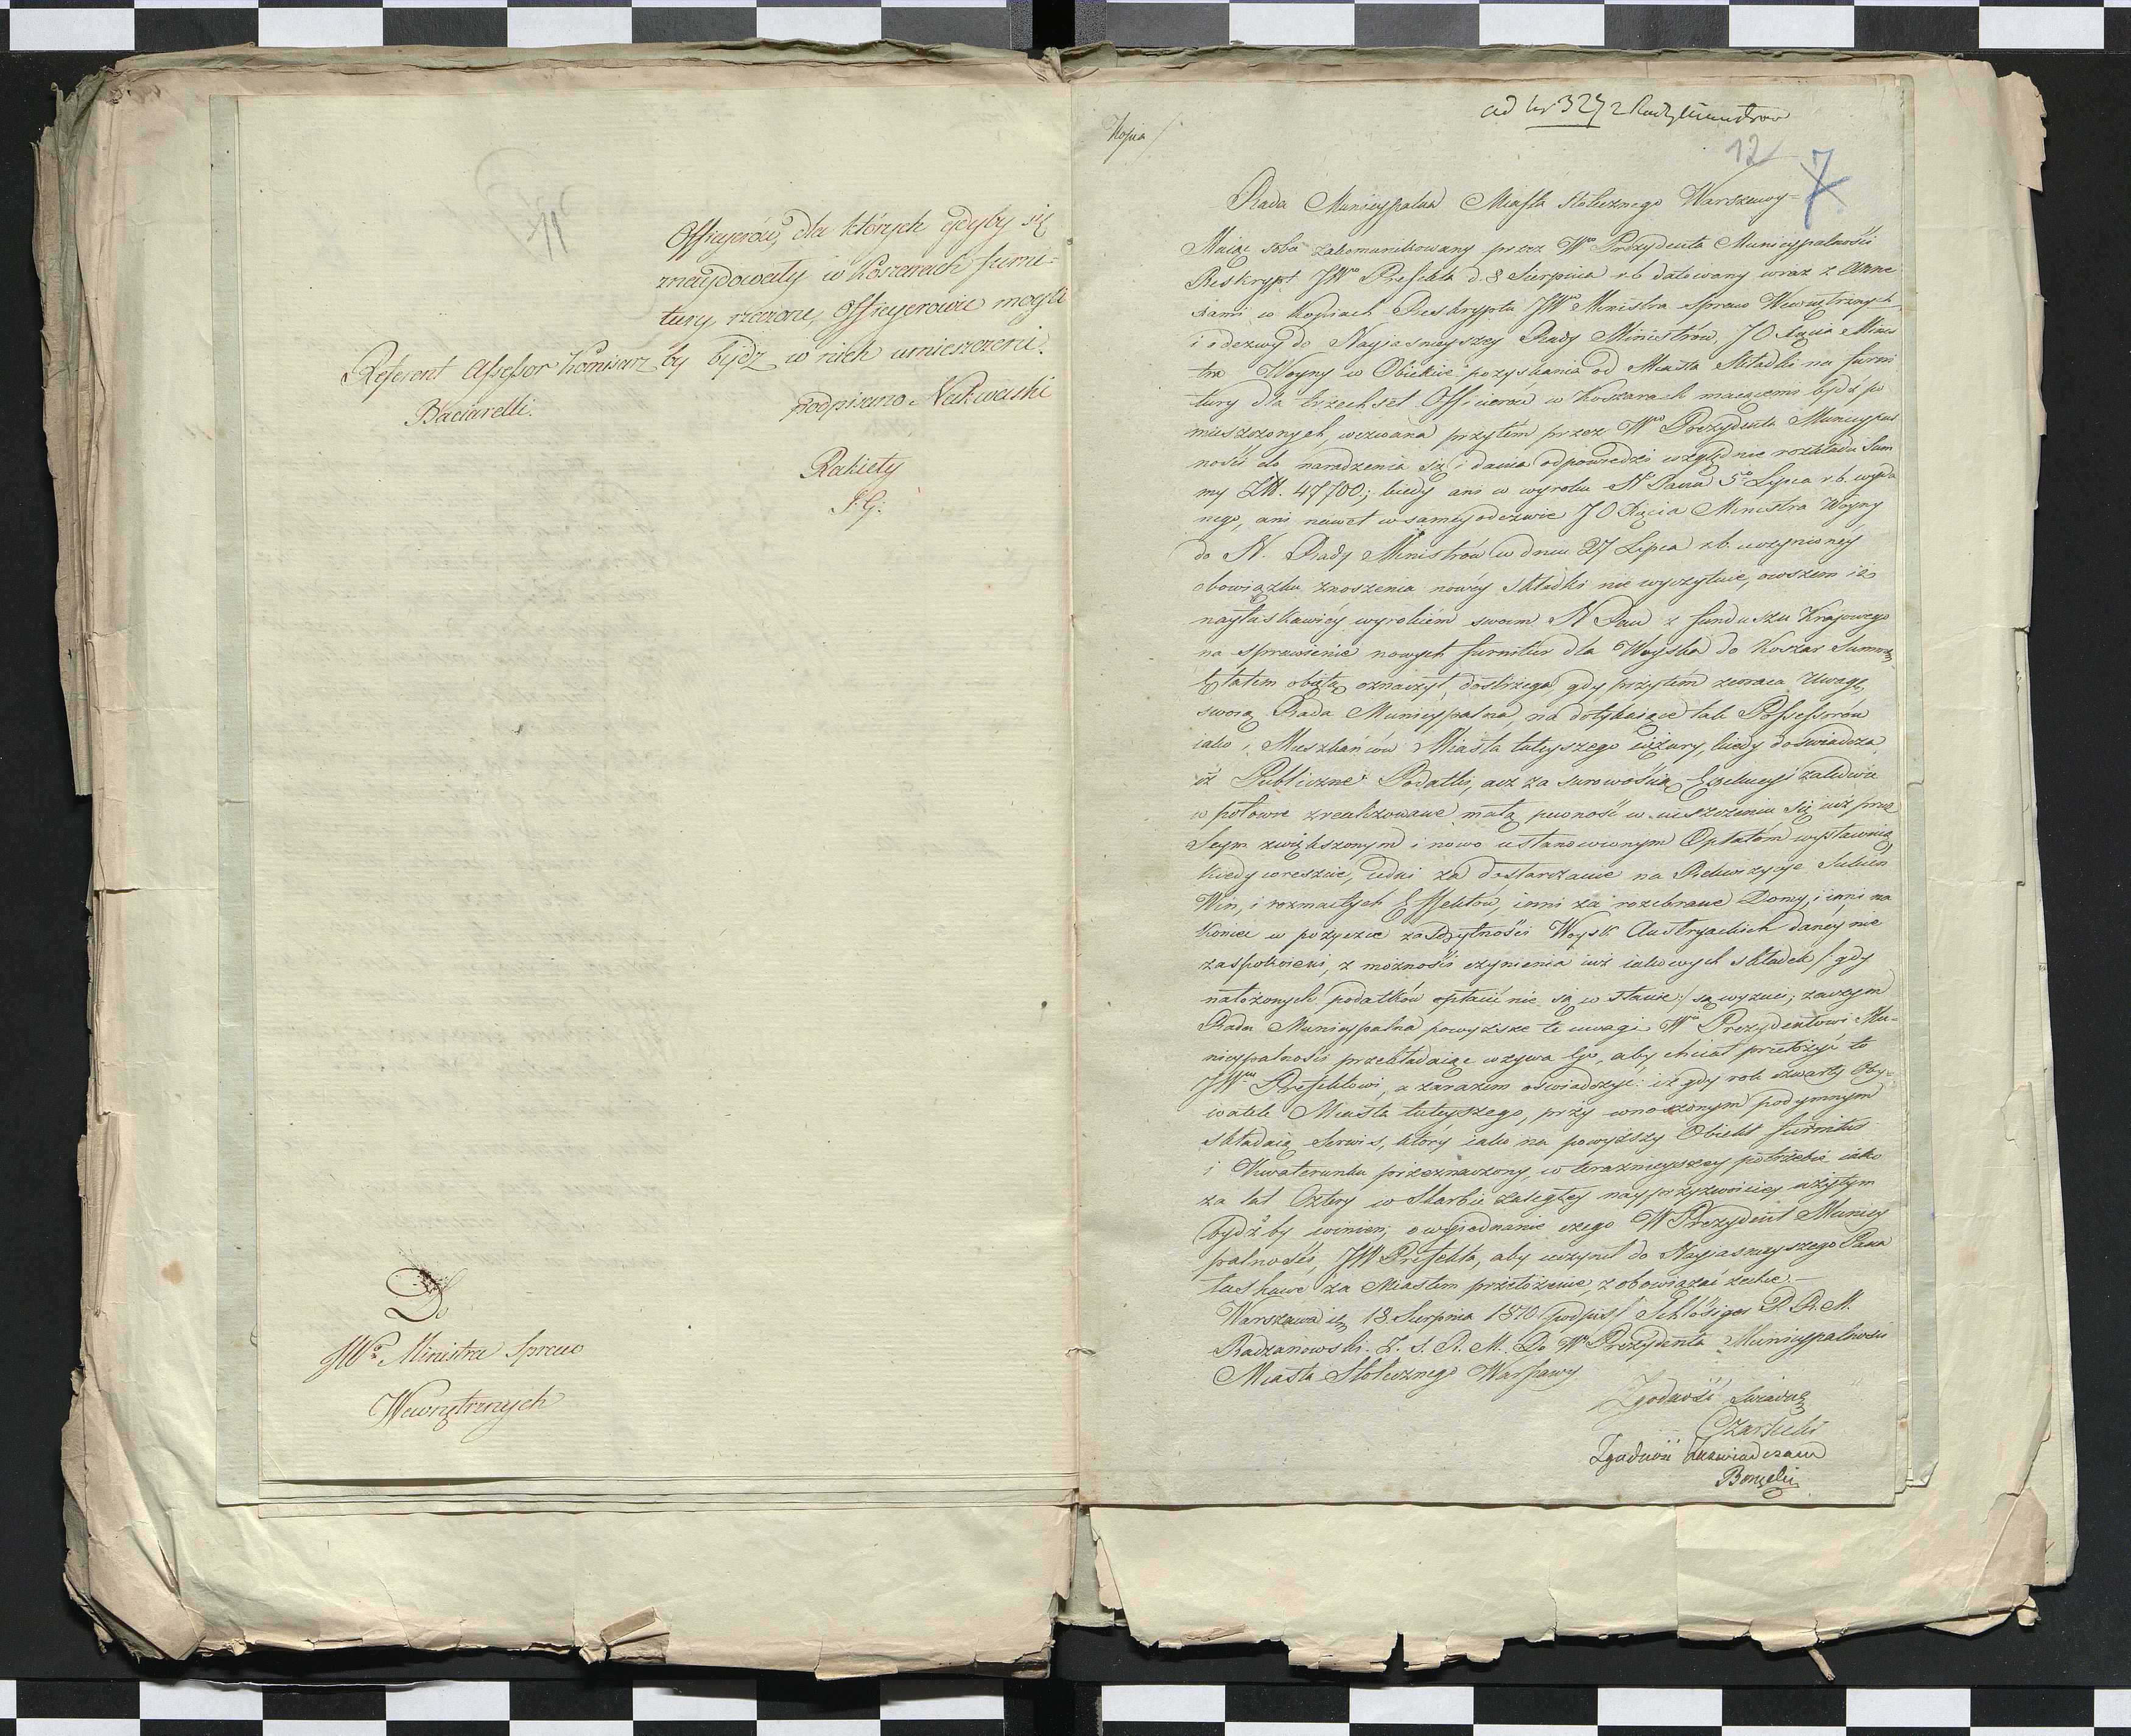 Officyerów, dla których gdyby się
znaydowały w Koszarach furni-
tury, rzeczone Officyerowie mogli
by bydź w nich umieszczeni.
podpisano Nakwaski
Rakiety
S. G.
Referent Assessor Komisarz
Baciarelli.
Do
JWo Ministra Spraw
Wewnętrznych
Kopia
ad Nr 327 z Rady Ministrów
12
7
Rada Municypalna Miasta Stołecznego Warszawy
Maiąc sobie zakomunikowany przez Wo Prezydenta Municypalności
Reskrypt JWo Prefekta d. 8 Sierpnia r.b. datowany wraz z Anne
xami w Kopiach Reskryptu JWo Ministra Spraw Wewnętrznych
i odezwy do Nayiasnieyszey Rady Ministrów, JO Xięcia Minis
tra Woyny w Obiekcie pozyskania od Miasta Składki na furni
tury dla trzechset Officierów w Koszarach maiącemi bydź po
mieszczonych, wezwana przytém przez Wo Prezydenta Municypal
ności do naradzenia się i dania odpowiedzi względnie rozkładu Sum
my Złł. 47700; kiedy ani w wyroku N Pana 5o Lipca r.b. wyda
nego, ani nawet w samey odezwie JO Xięcia Ministra Woyny
do N. Rady Ministrów w dniu 27 Lipca r.b. uczynioney
obowiązku znoszenia nowéy składki nie wyczytuie, owszem iż
nayłaskawiéy wyrokiem swoim N Pan z funduszu Krajowego
na sprawienie nowych furnitur dla Woyska do Koszar Summę
Etatem obiętą oznaczył, dostrzega, gdy przytém zwraca Uwagę
swoią Rada Municypalna, na dotykaiące tak Possessorów
iako i Mieszkańców Miasta tuteyszego ciężary, kiedy doświadcza
iż Publiczne Podatki, acz za surowością Exekucyi zaledwie
w połowie zrealizowane małą pewność w uiszczeniu się iuż przez
Seym zwiększonym i nowo ustanowionym Opłatom wystawuią
kiedy wreszcie, iedni za dostarczanie na Rekwizycye Sukien
Win, i rozmaitych Effektów, inni za rozebrane Domy, i inni na
koniec w pożyczce za bytności Woysk Austryackich danéy nie
zaspokoieni, z możności czynienia iuż iakowych składek /: gdy
nałożonych podatków opłacić nie są w stanie :/ są wyzuci; zaczym
Rada Municypalna powyższe te uwagi Wo Prezydentowi Mu-
nicypalności przekładaiąc wzywa Go, aby chciał przełożyć to
JWmu Prefektowi, a zarazem oświadczyć: iż gdy rok czwarty Oby-
watele Miasta tuteyszego, przy wnoszonym podymnym
składaią Serwis, który iako na powyższy Obiekt furnitur
i Kwaterunku przeznaczony, w teraznieyszey potrzebie iako
za lat Cztery w Skarbie zaległey nayprzyzwoiciey użytym
bydź by winien; o wyiednanie czego W Prezydent Municy
palności, JW Prefekta, aby uczynił do Nayiasnieyszego Pana
łaskawe za Miastem przełożenie, zobowiązać zechce.—
Warszawa d. 18 Sierpnia 1810 (podpis) Schlösiger P. R. M.
Radzanowski Z. S. R. M. Do Wo Prezydenta Municypalności
Miasta Stołecznego Warszawy
Zgodność świadczę
Czarnecki
Zgodność zaswiadczam